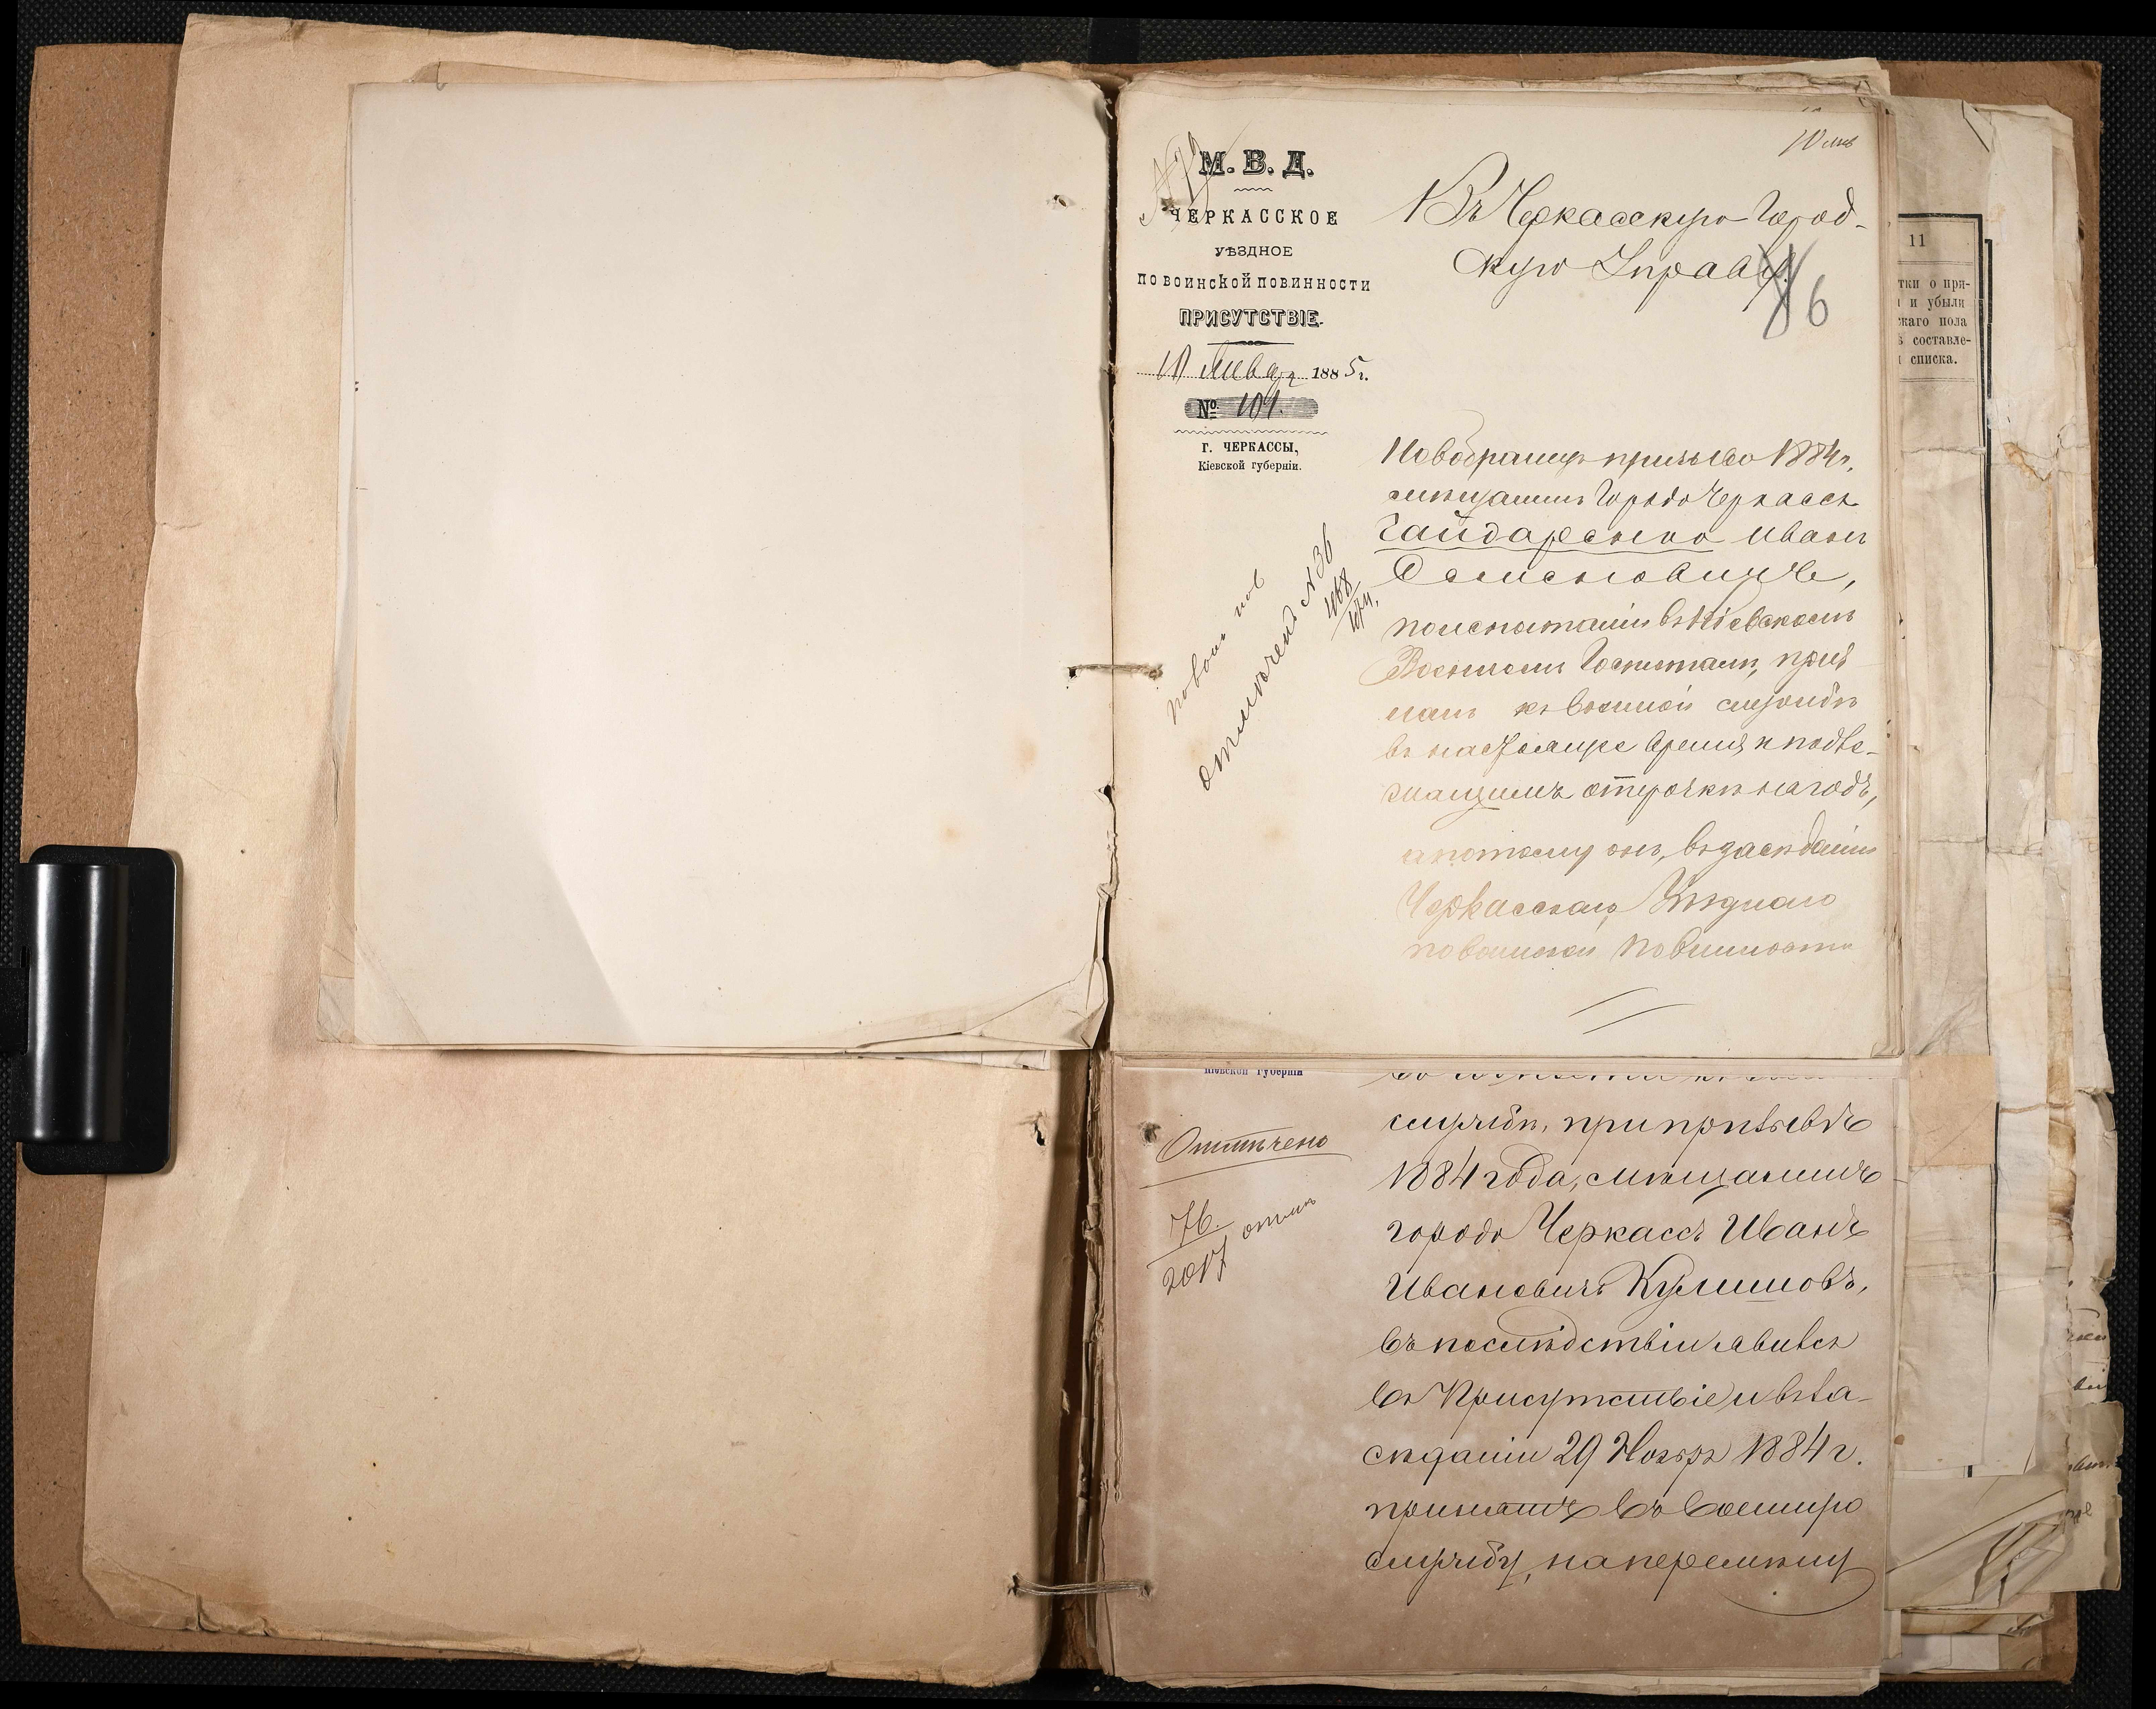 М. В. Д.
ЧЕРКАССКОЕ
УѢЗДНОЕ
ПО ВОИНСКОЙ ПОВИННОСТИ
ПРИСУТСТВІЕ.
10 Январ 1885 г.
№ 101.
Г. ЧЕРКАССЫ,
Кіевской губерніи.
Въ Черкасскую Город-
скую Управу.
6
Новобранецъ призыва 1884 г.
мѣщанинъ города Черкассъ
Гайдаренко Иванъ
по испытаніи въ Кіевскомъ
Военномъ Госпиталѣ, приз
нанъ къ военной службѣ
въ настоящее время и подле-
жащимъ отсрочкѣ на годъ,
а потому онъ, въ засѣданіи
Черкасскаго Уѣзднаго
по воинской повинности
отмѣчено № 36
1068
Кіевской губерніи
службѣ, при призывѣ
1884 года, мѣщанинъ
города Черкассъ Иванъ
Ивановичъ Кулишовъ,
въ послѣдствіи явился
въ Присутствіе и въ за-
сѣданіи 29 Ноября 1884 г.
принятъ въ военную
службу, на перемѣну
Отмѣчено
76.
2017
11
тки о при-
и убыли
скаго пола
составле-
списка.